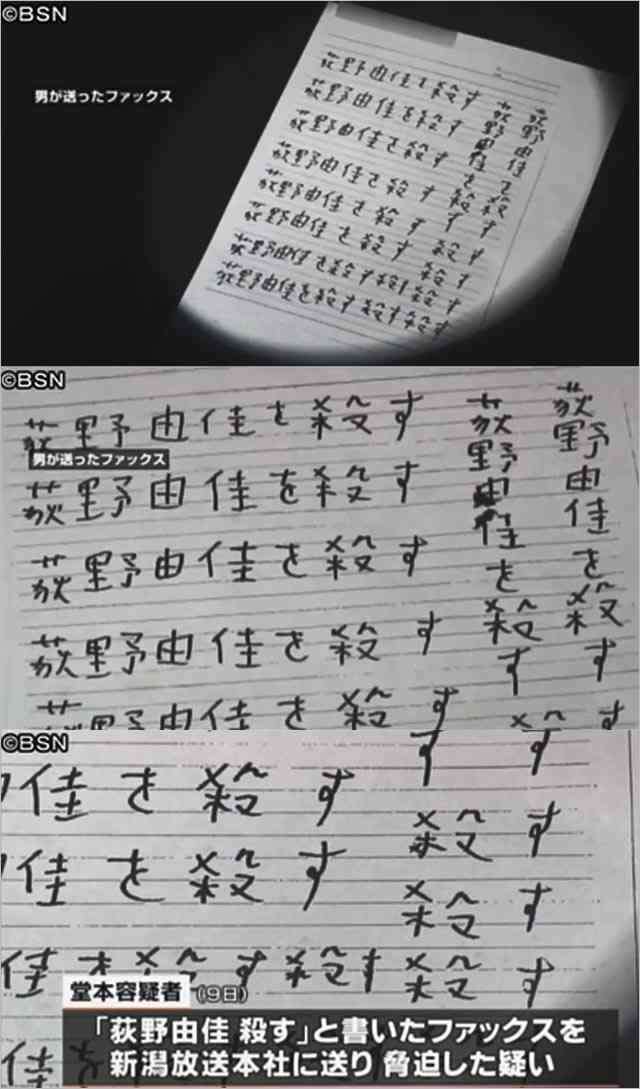 ©BSN
男が送ったファックス
荻野由佳を殺す
荻野由佳を殺す
荻野由佳を殺す
荻野由佳を殺す
荻野由佳を殺す
荻野由佳を殺す
荻野由佳を殺す殺す殺す
荻野由佳を殺す殺す殺す
荻野由佳を殺す
荻野由佳を殺す
殺す
殺す
©BSN
男が送ったファックス
荻野由佳を殺す
荻野由佳を殺す
荻野由佳を殺す
荻野由佳を殺す
荻野由佳を殺す
荻野由佳を殺す
荻野由佳を殺す
殺す
©BSN
佳を殺す
佳を殺す
佳を殺す殺す殺す
す
す
殺す
殺す
佳
堂本容疑者
(9日)
「荻野由佳 殺す」と書いたファックスを
新潟放送本社に送り 脅迫した疑い